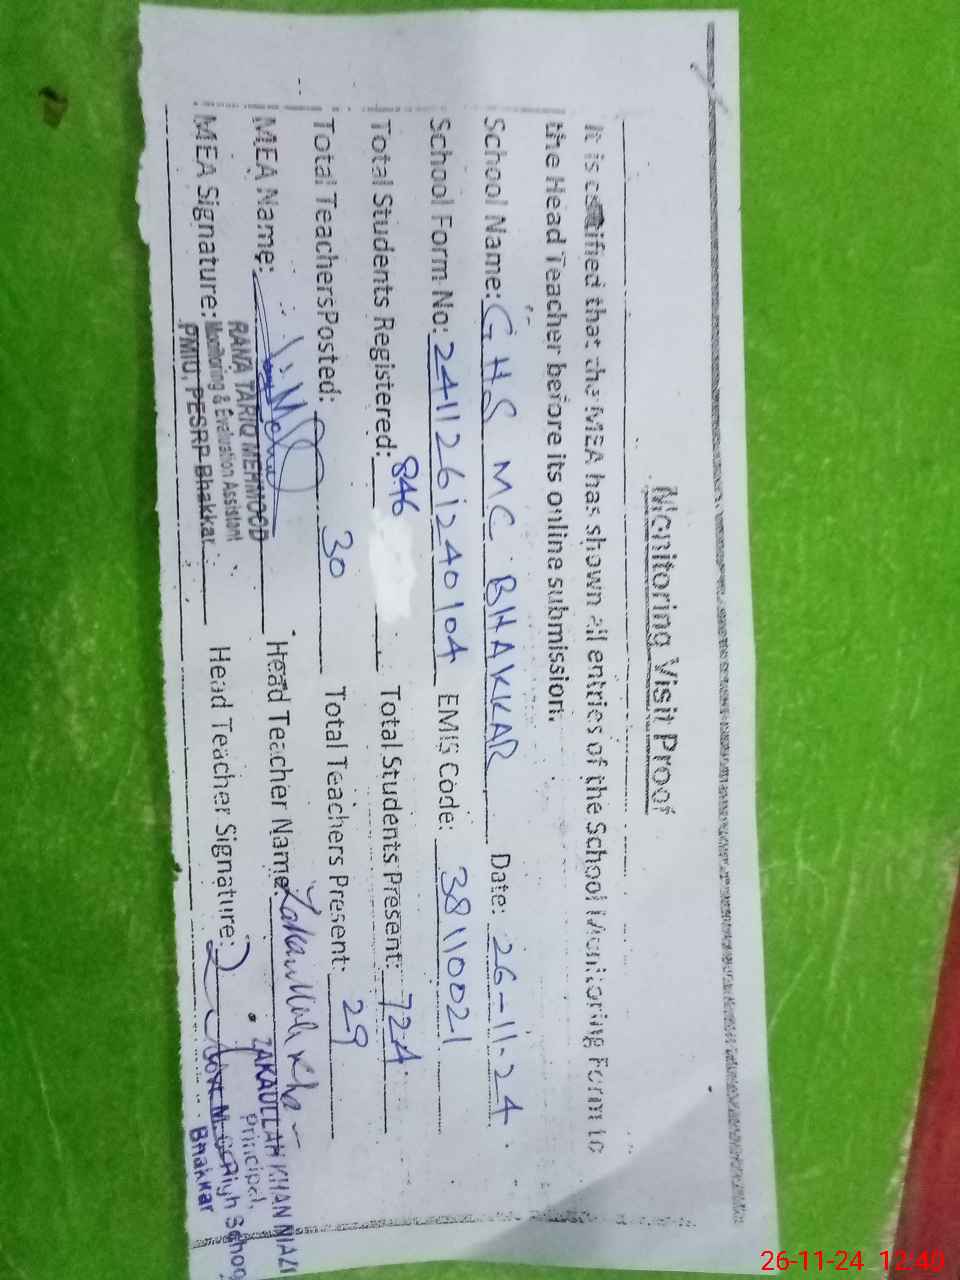 Monitoring Visit Proof
It is certified that the MEA has shown all entries of the School Monitoring Form to
the Head Teacher before its online submission.
School Name: GHS MC BHAKKAR Date: 26-11-24
School Form No: 2411261240104 EMIS Code: 38110021
Total Students Registered: 846 Total Students Present: 724
Total Teachers Posted: 30 Total Teachers Present: 29
MEA Name: Head Teacher Name: Zakaullah Khan
RANA TARIQ MEHMOOD
MEA Signature: Monitoring & Evaluation Assistant
PMIU, PESRP Bhakkar
Head Teacher Signature:
ZAKAULLAH KHAN NIAZI
Principal,
Govt. M.C High School
Bhakkar
26-11-24 12:40